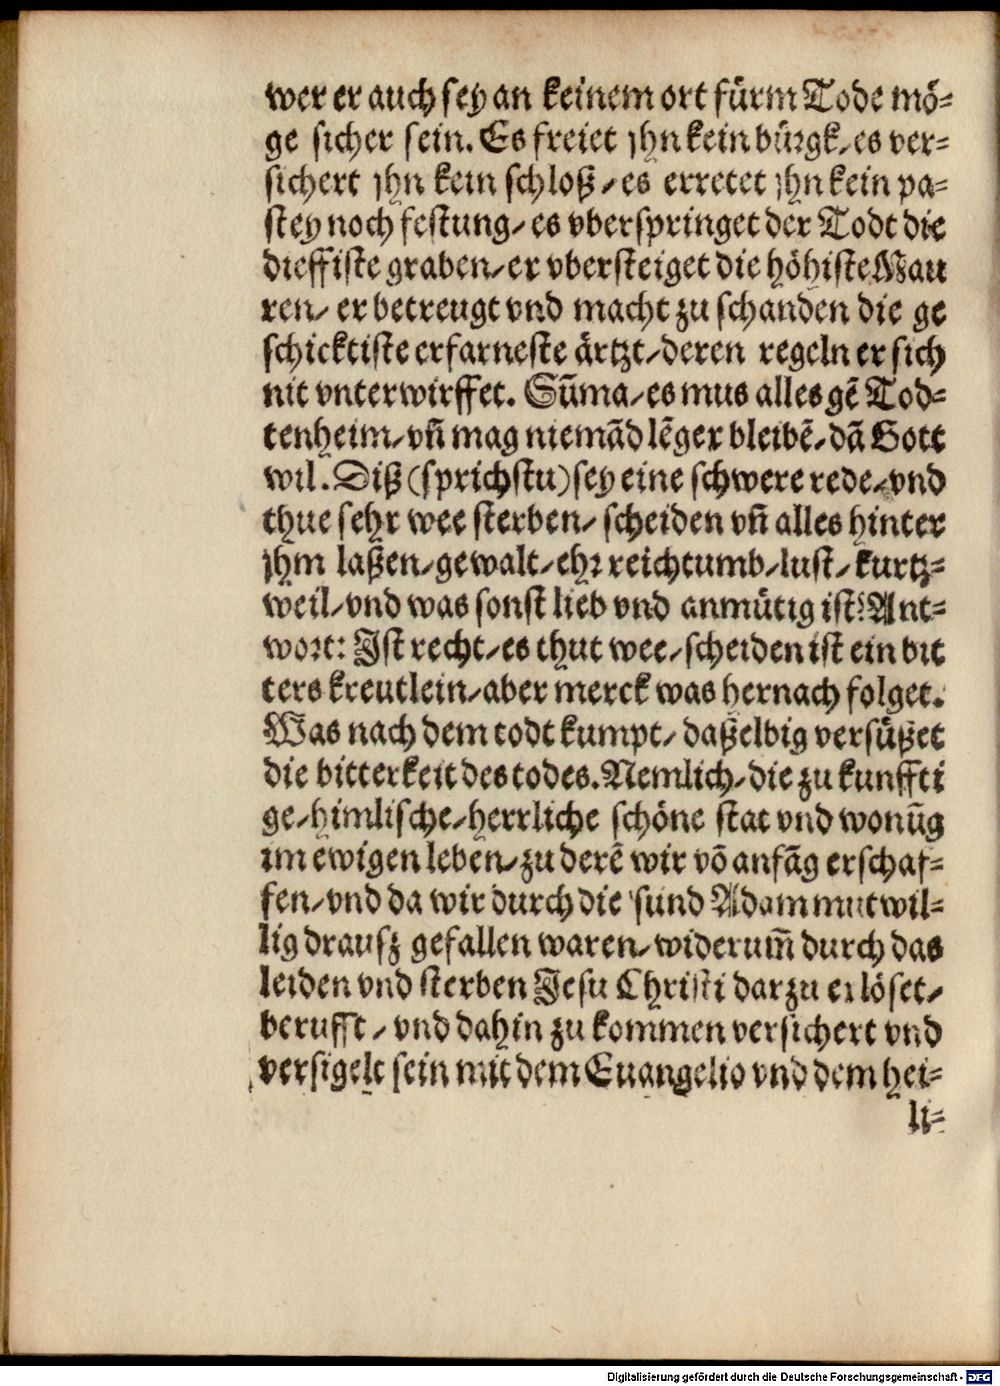 wer er auch sey an keinem ort fürm Tode mö⸗
ge sicher sein. Es freiet jhn kein bürgk/ es ver⸗
sichert jhn kein schloß/ es erretet jhn kein pa⸗
stey noch festung/ es vberspringet der Todt die
dieffiste graben/ er vbersteiget die höhiste Mau
ren/ er betreugt vnd macht zu schanden die ge
schicktiste erfarneste ärtzt/ deren regeln er sich
nit vnterwirffet. Sum̃a/ es mus alles gẽ Tod⸗
tenheim/ vñ mag niemãd lẽger bleibẽ/ dã Gott
wil. Diß (sprichstu) sey eine schwere rede/ vnd
thue sehr wee sterben/ scheiden vñ alles hinter
jhm laßen/ gewalt/ ehr reichtumb/ lust/ kurtz⸗
weil/ vnd was sonst lieb vnd anmütig ist? Ant⸗
wort: Ist recht/ es thut wee/ scheiden ist ein bit
ters kreutlein/ aber merck was hernach folget.
Was nach dem todt kumpt/ daßelbig versüßet
die bitterkeit des todes. Nemlich/ die zu kunffti
ge/ himlische/ herrliche schöne stat vnd wonũg
im ewigen leben/ zu derẽ wir võ anfãg erschaf⸗
fen/ vnd da wir durch die sund Adam mutwil⸗
lig drausz gefallen waren/ widerum̃ durch das
leiden vnd sterben Jesu Christi darzu erlöset/
berufft/ vnd dahin zu kommen versichert vnd
versigelt sein mit dem Euangelio vnd dem hei⸗
li⸗
Digitalisierung gefördert durch die Deutsche Forschungsgemeinschaft - DFG